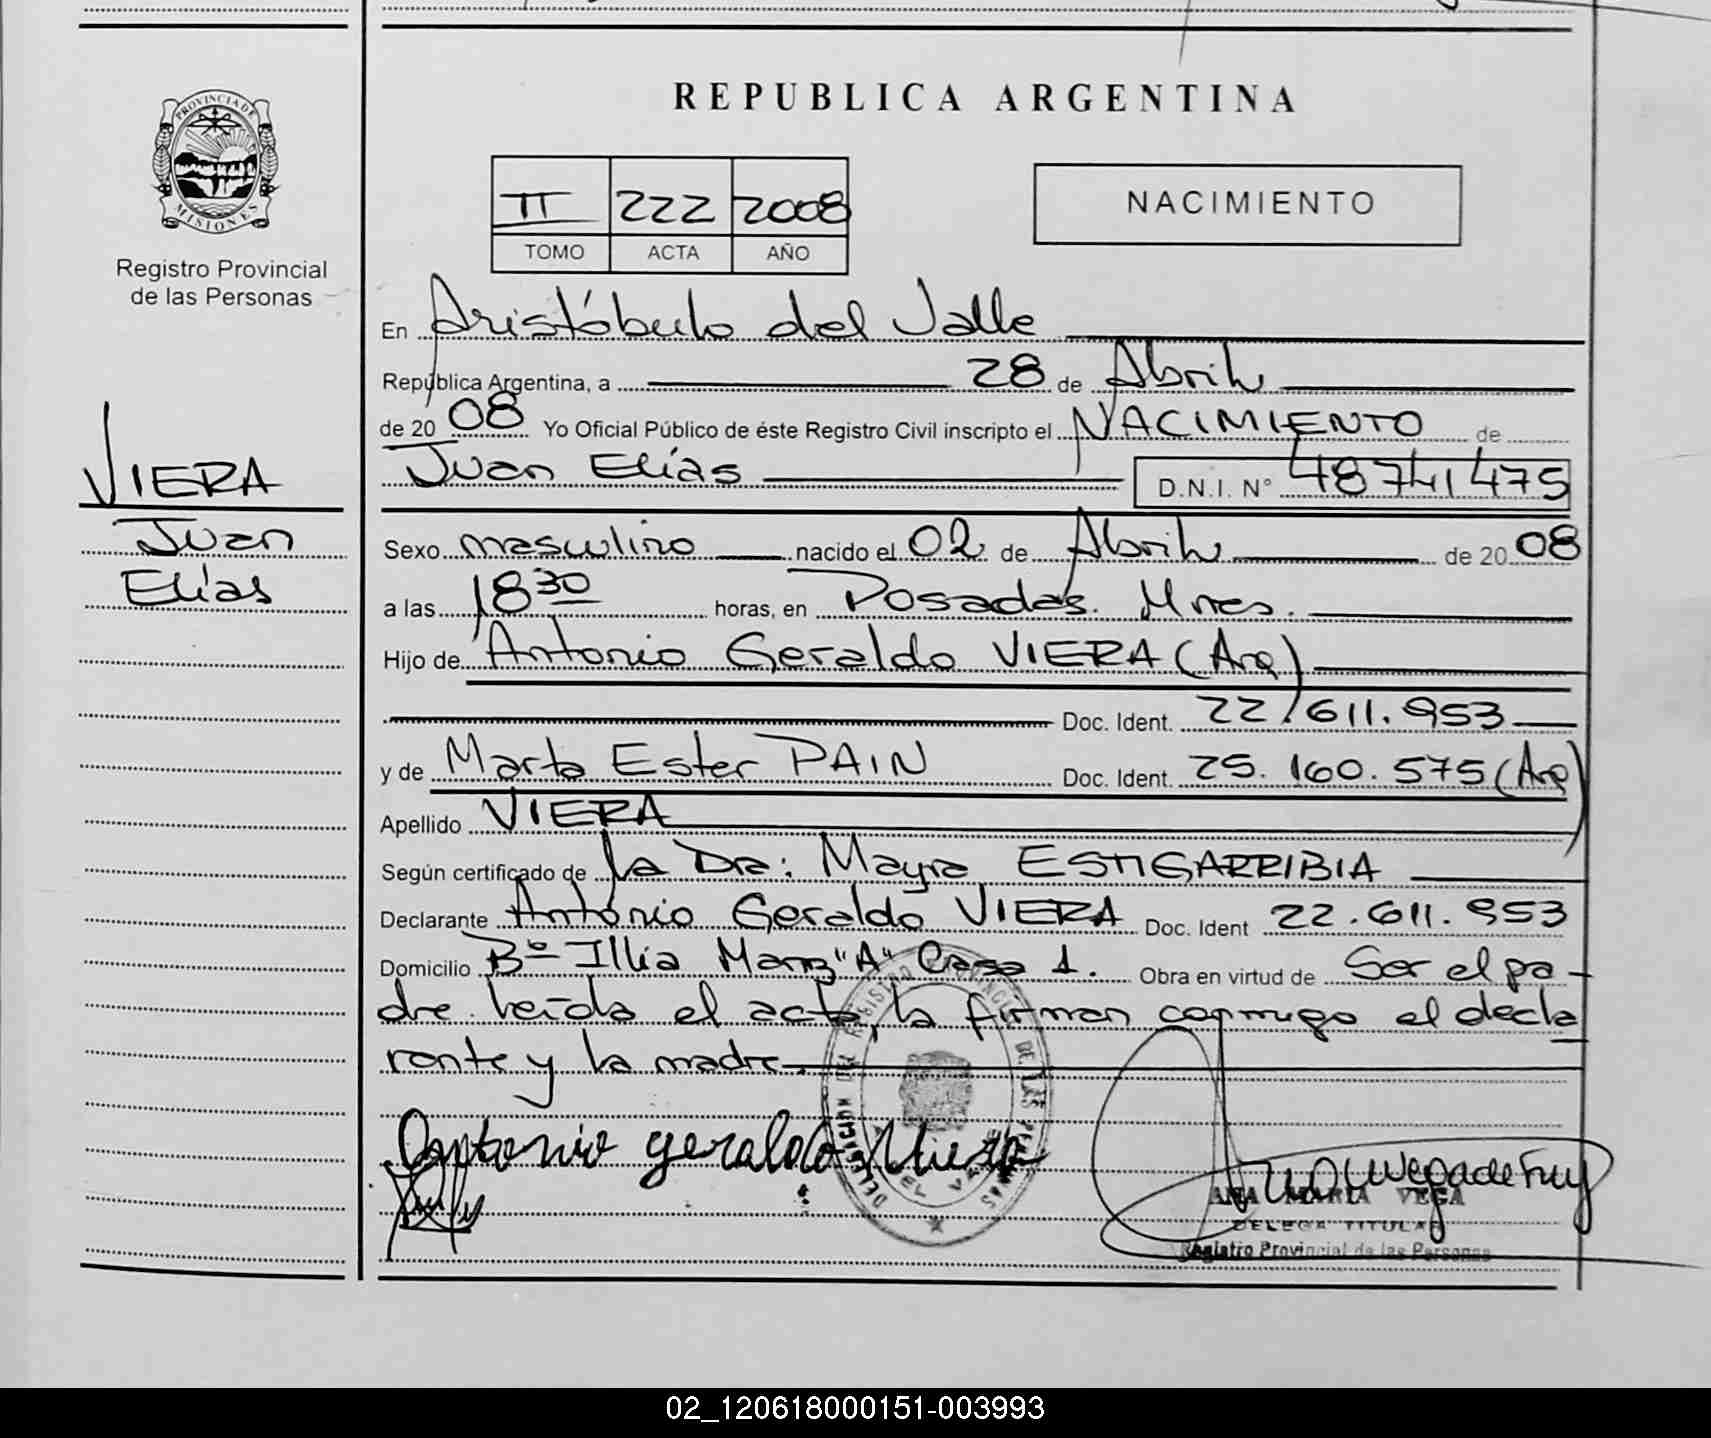 REPUBLICA ARGENTINA
PROVINCIA DE MISIONES
Registro Provincial
de las Personas
II 222 2008
TOMO ACTA AÑO
NACIMIENTO
En Aristóbulo del Valle
República Argentina, a 28 de Abril
de 2008 Yo Oficial Público de éste Registro Civil inscripto el NACIMIENTO de
Juan Elías D.N.I. N° 48741475
VIERA
Juan
Elías
Sexo masculino nacido el 02 de Abril de 2008
a las 18 30 horas, en Posadas. Mnes.
Hijo de Antonio Geraldo VIERA (Arg)
Doc. Ident. 22.611.953
y de Marta Ester PAIN Doc. Ident. 25.160.575 (Arg)
Apellido VIERA
Según certificado de la Dra: Mayra ESTIGARRIBIA
Declarante Antonio Geraldo VIERA Doc. Ident 22.611.953
Domicilio B° Illia Manz "A" Casa 1. Obra en virtud de Ser el pa-
dre leída el acta, la firman conmigo el decla
rante y la madre
Antonio geraldo Viera
ANA MARIA VEGA
DELEGA TITULAR
Registro Provincial de las Personas
02_120618000151-003993